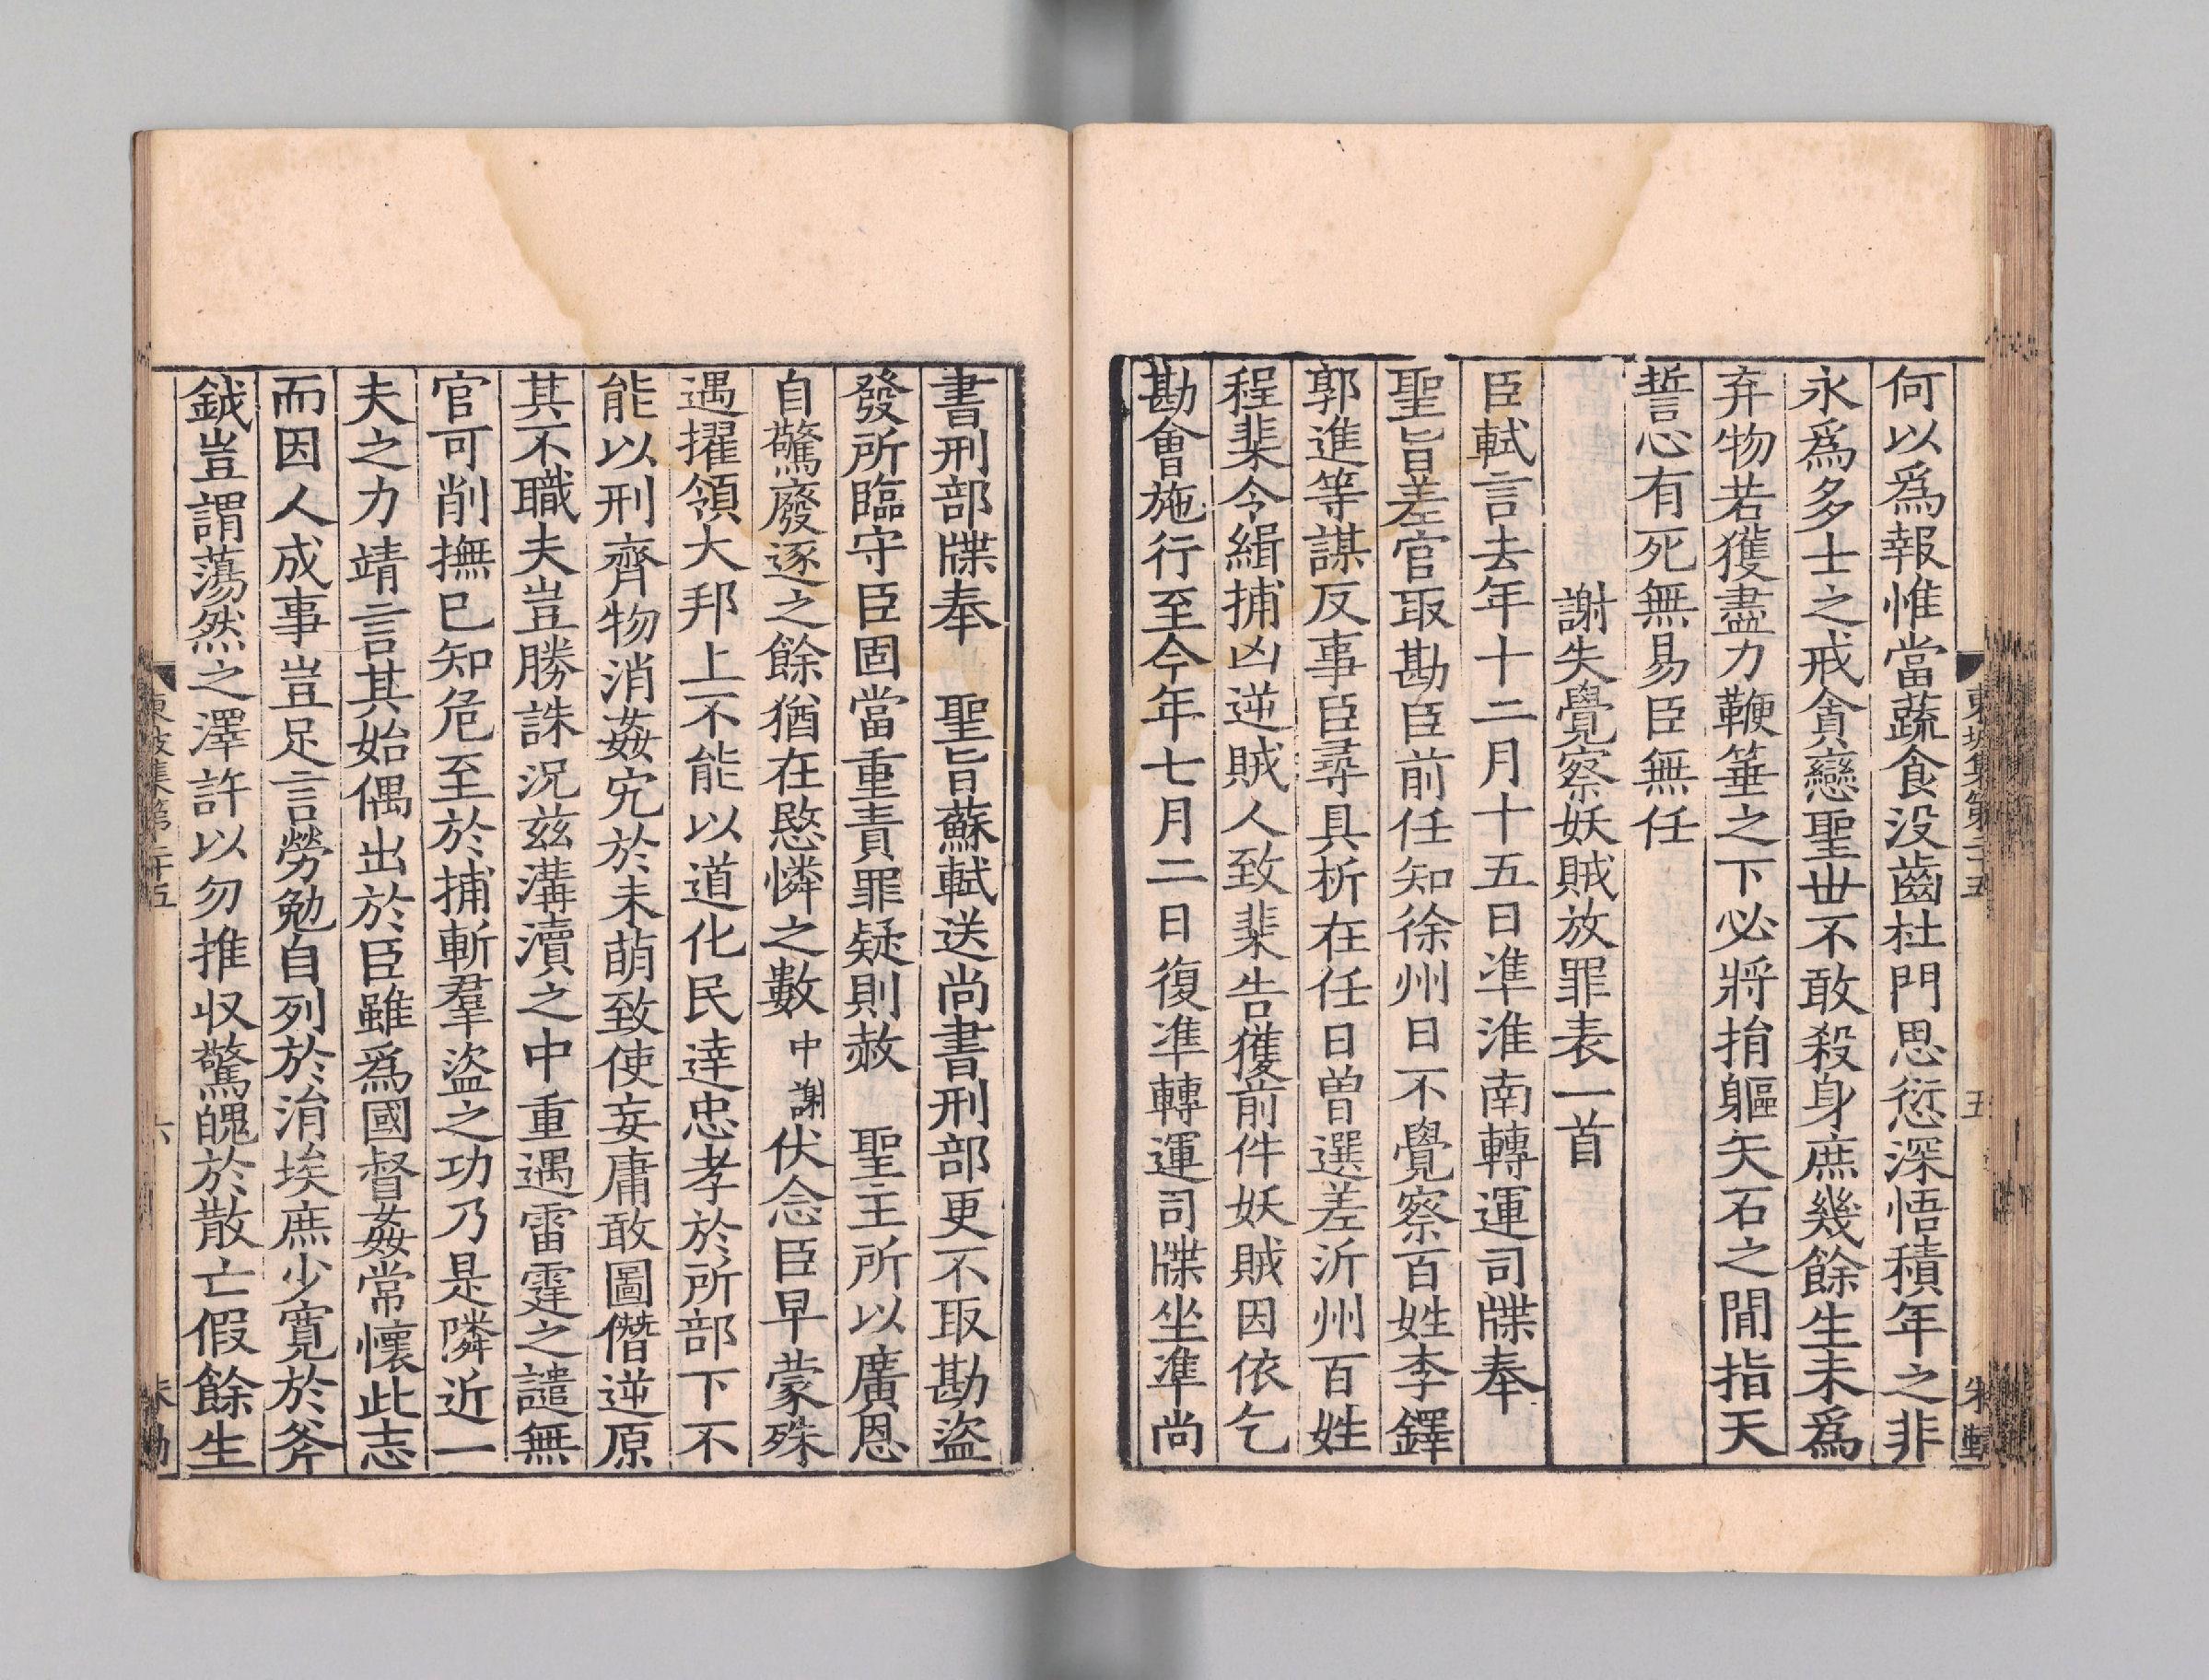 東坡集第二十五
五
何以爲報惟當蔬食没齒杜門思愆深悟積年之非
永爲多士之戒貪戀聖世不敢殺身庶幾餘生未爲
弃物若獲盡力鞭箠之下必將捐軀矢石之閒指天
誓心有死無易臣無任
謝失覺察妖賊放罪表一首
臣軾言去年十二月十五日準淮南轉運司牒奉
聖旨差官取勘臣前任知徐州日不覺察百姓李鐸
郭進等謀反事臣尋具析在任日曾選差沂州百姓
程棐令緝捕凶逆賊人致棐告獲前件妖賊因依乞
勘會施行至今年七月二日復準轉運司牒坐準尚
書刑部牒奉　聖旨蘇軾送尚書刑部更不取勘盜
發所臨守臣固當重責罪疑則赦　聖主所以廣恩
自驚廢逐之餘猶在愍憐之數中謝伏念臣早蒙殊
遇擢領大邦上不能以道化民達忠孝於所部下不
能以刑齊物消姦宄於未萌致使妄庸敢圖僭逆原
其不職夫豈勝誅況兹溝瀆之中重遇雷霆之譴無
官可削撫已知危至於捕斬羣盜之功乃是隣近一
夫之力靖言其始偶出於臣雖爲國督姦常懷此志
而因人成事豈足言勞勉自列於涓埃庶少寬於斧
鉞豈謂蕩然之澤許以勿推収驚魄於散亡假餘生
東坡集第二十五
六